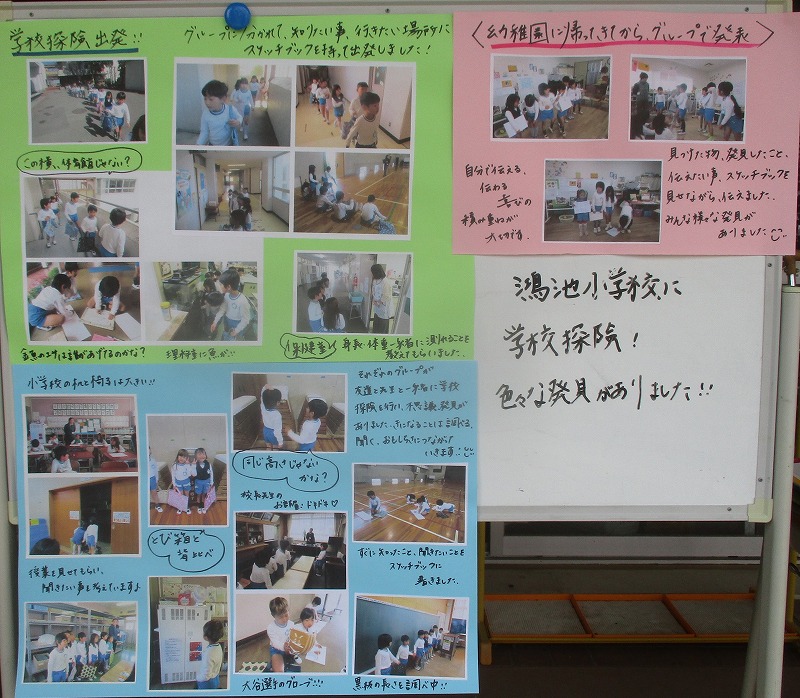 学校探険出発!!
グループに分かれて、知りたい事、行きたい場所に
スケッチブックを持って出発しました!
この横、体育館じゃない?
理科室に魚が!!
保健室
身長・体重一緒に測れることを
教えてもらいました。
<幼稚園に帰ってきてから、グループで発表>
自分で伝える、
伝わる
喜びの
積み重ねが
大切です。
見つけた物、発見したこと、
伝えたい事、スケッチブックを
見せながら、伝えました。
みんな様々な発見が
ありました
鴻池小学校に
学校探険!
色々な発見がありました!!
小学校の机と椅子は大きい!!
とび箱と
背比べ
授業を見せてもらい、
聞きたい事も考えていますよ
同じ高さじゃない
かな?
校長先生の
お部屋:ドキドキ♡
大谷選手のグローブ!!!
それぞれのグループが
友達と先生と一緒に学校
探険を行い、不思議、発見が
ありました。きになることは調べる、
聞く、おもしろさにつながって
いきます!
すぐに知ったこと、聞きたいことを
スケッチブックに
書きました。
黒板の長さを調べ中!!